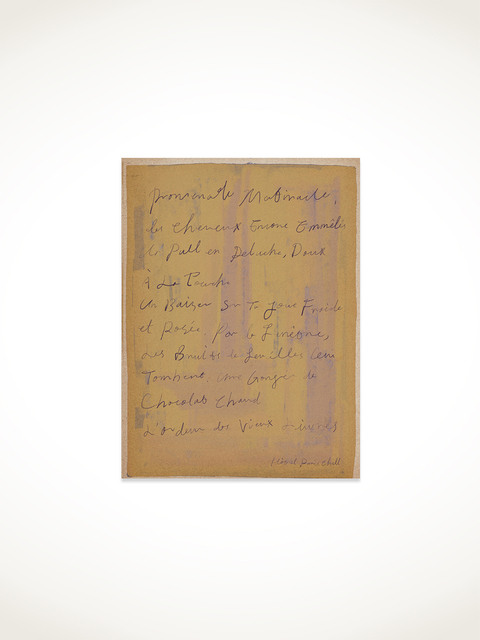 Promenade Matinale,
les cheveux Encore Emmêlés
le Pull en Peluche, Doux
à La Touche
Un Baiser Sur Ta Joue Froide
et Rosée Par le
Les Bruits de feuilles
Tombent, une Gorgée de
Chocolat Chaud
L'odeur des Vieux Livres